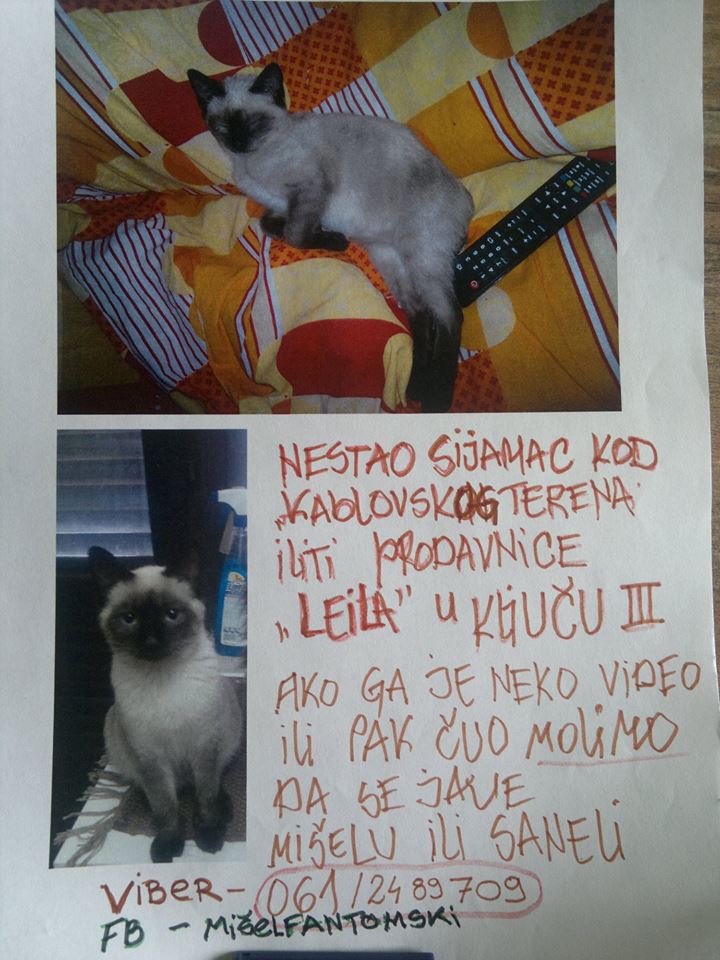 NESTAO SIJAMAC KOD
„KABLOVSKOG TERENA“
ILITI PRODAVNICE
„LEILA“ U KLJUČU III
AKO GA JE NEKO VIDEO
ILI PAK ČUO MOLIMO
DA SE JAVE
MIŠELU ILI SANELI
VIBER- 061/2489709
FB - MIŠELFANTOMSKI